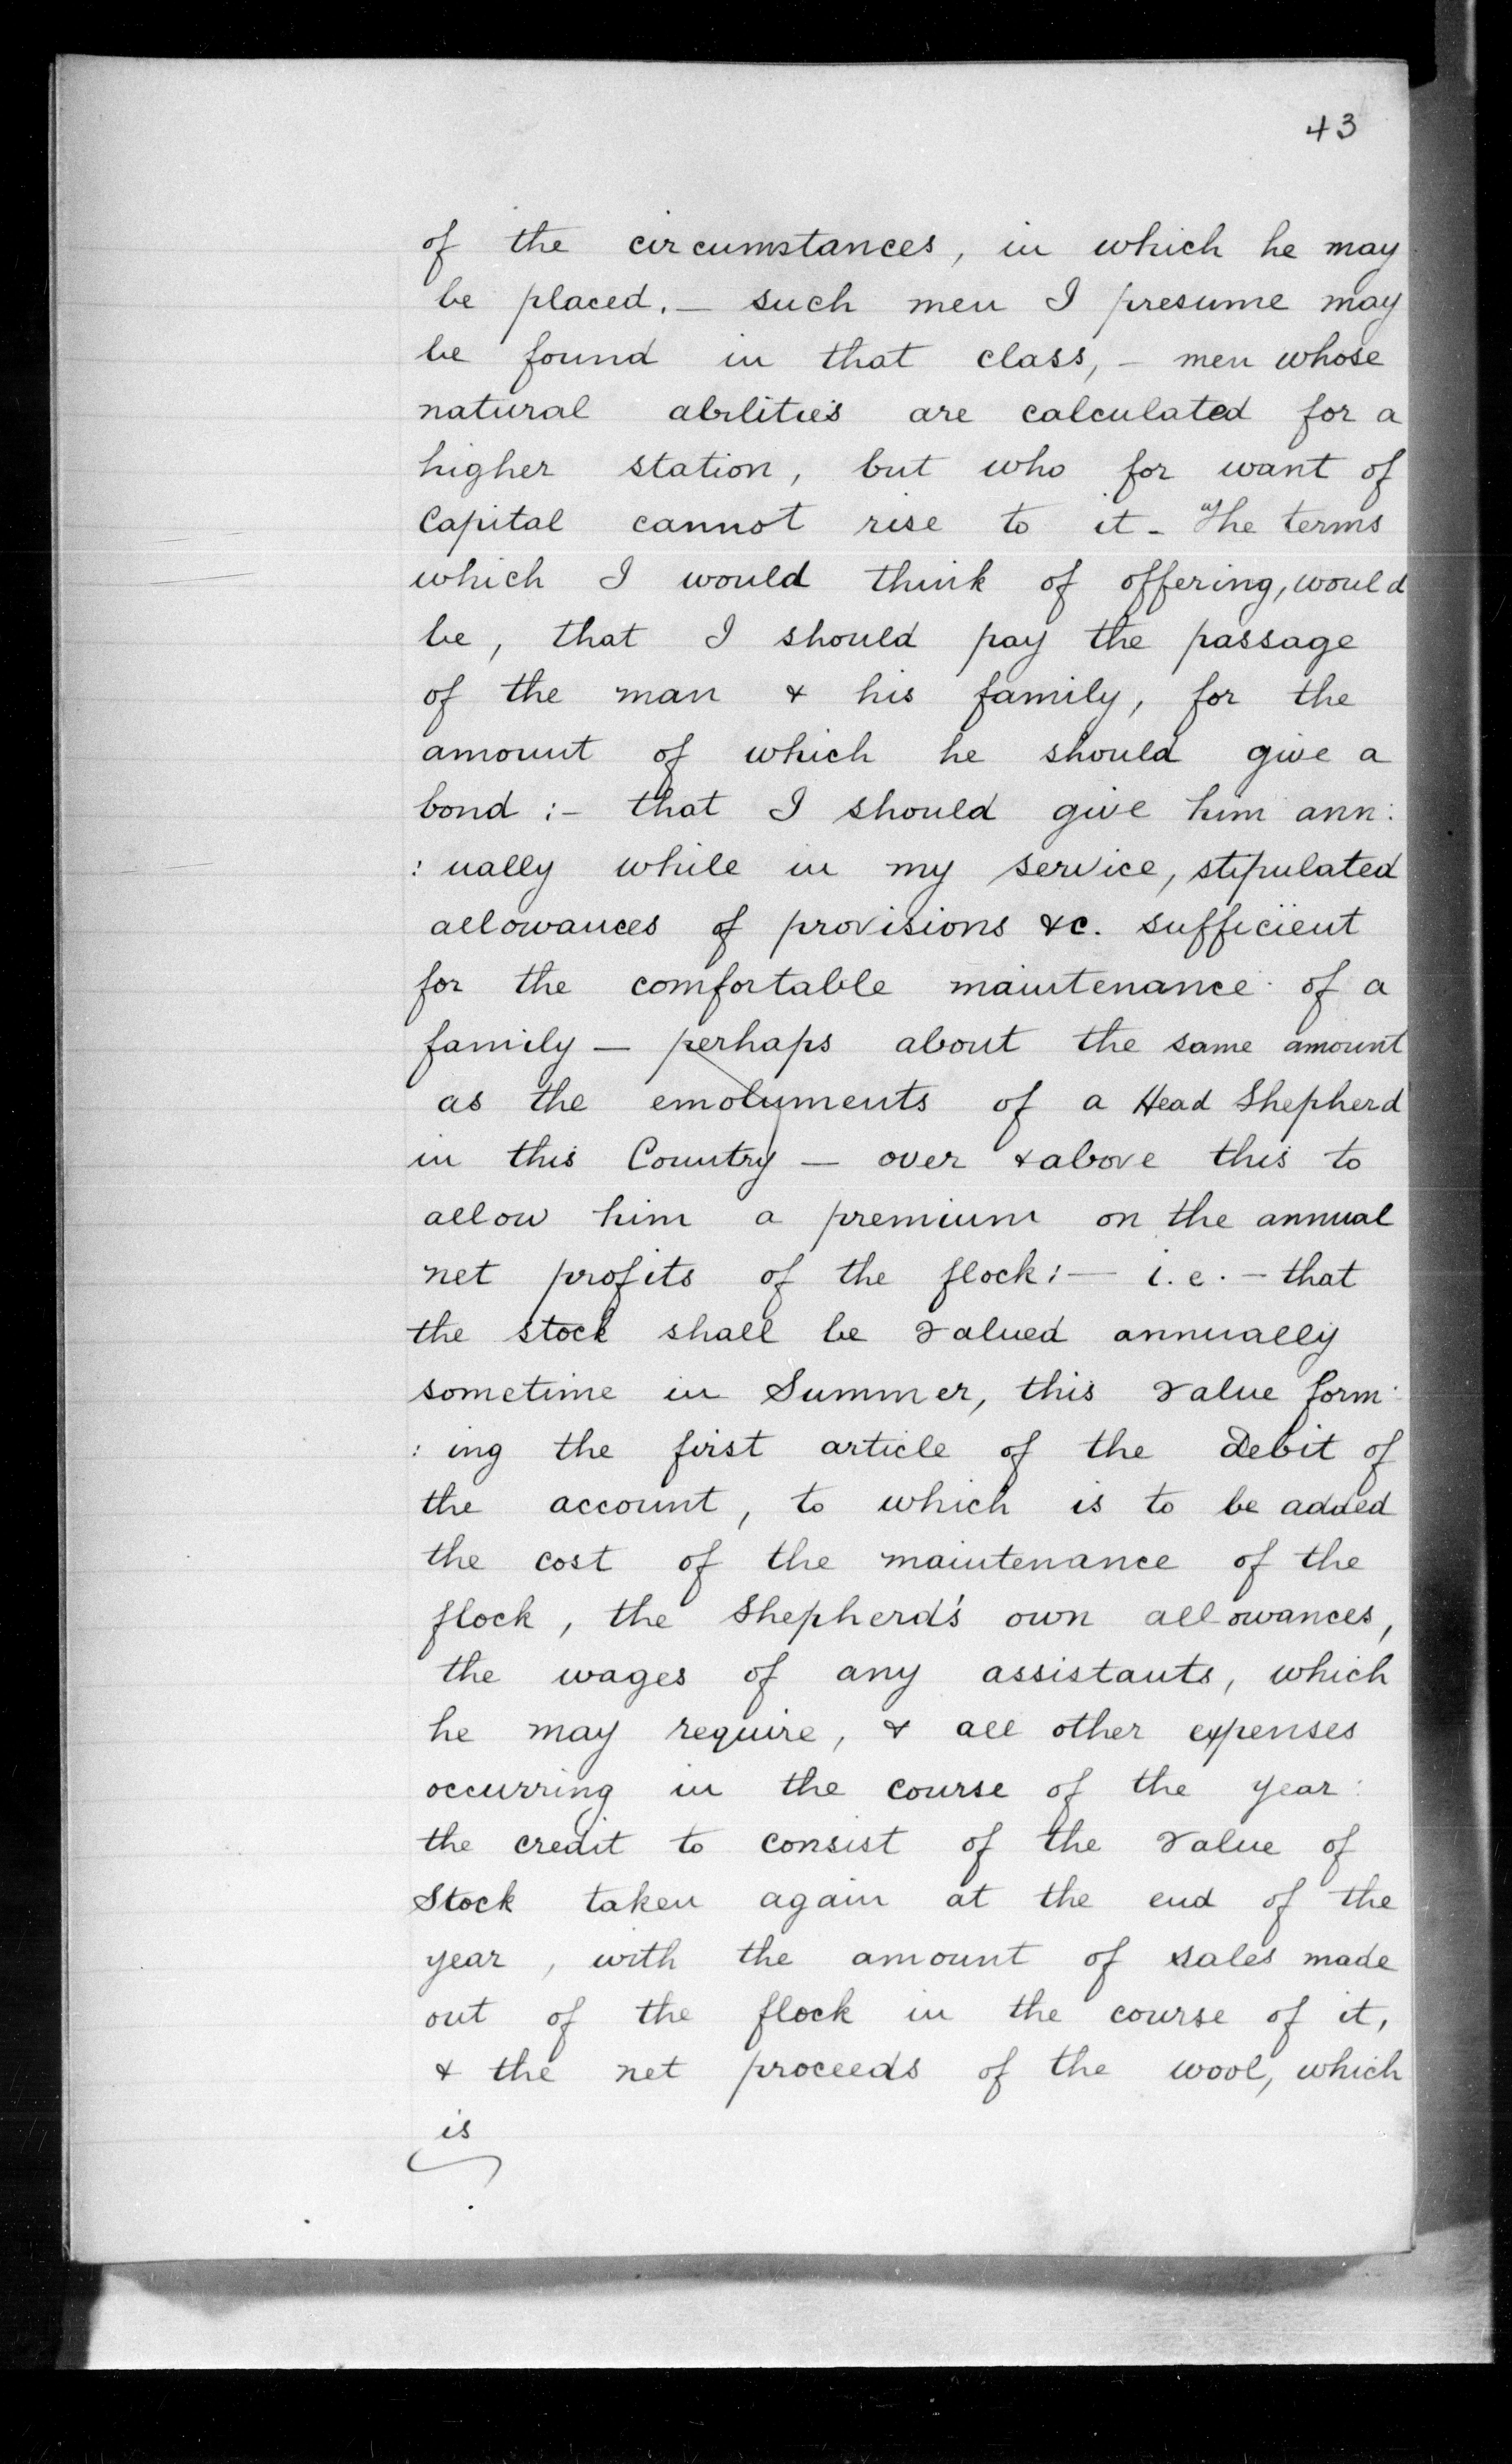 43
of the circumstances, in which he may
be placed. — such men I presume may
be found in that class, - men whose
natural abilities are calculated for a
higher station, but who for want of
Capital cannot rise to it - The terms
which I would think of offering, would
be, that I should pay the passage
of the man & his family, for the
amount of which he should give a
bond :- that I should give him ann:
: ually while in my service, stipulated
allowances of provisions &c. sufficient
for the comfortable maintenance of a
family — perhaps about the same amount
as the emoluments of a Head Shepherd
in this Country — over & above this to
allow him a premium on the annual
net profits of the flock :— i.e. — that
the stock shall be valued annually
sometime in Summer, this value form:
: ing the first article of the Debit of
the account, to which is to be added
the cost of the maintenance of the
flock, the Shepherd's own allowances,
the wages of any assistants, which
he may require, & all other expenses
occurring in the course of the year:
the credit to consist of the value of
Stock taken again at the end of the
year, with the amount of sales made
out of the flock in the course of it,
& the net proceeds of the wool, which
is